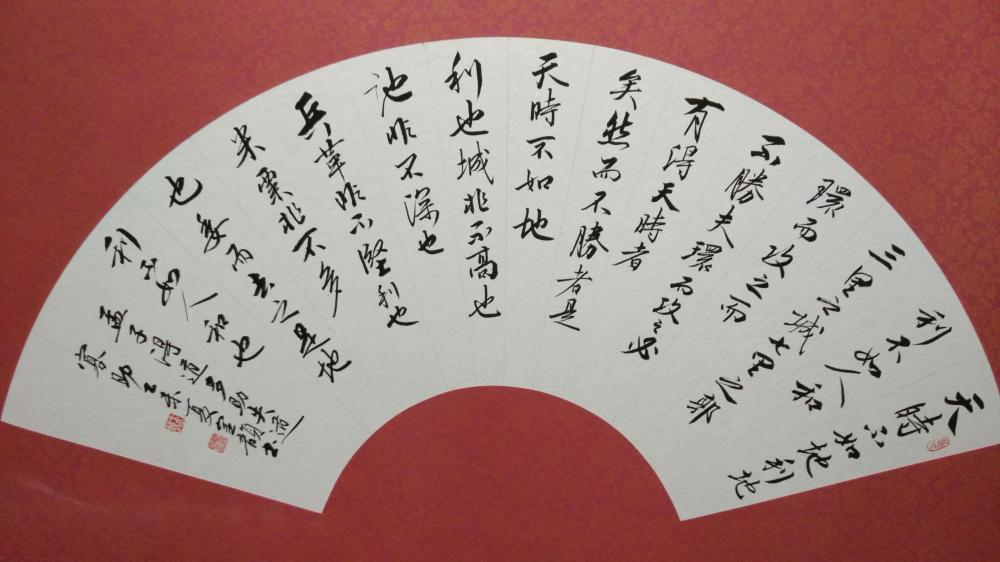 天時不如地利地
利不如人和
三里之城七里之郭
環而攻之而
不勝夫環而攻之必
有得天時者
矣然而不勝者是
天時不如地
利也城非不高也
池非不深也
兵革非不堅利也
米粟非不多
也委而去之是地
利不如人和也
孟子得道多助失道
寡助乙未夏